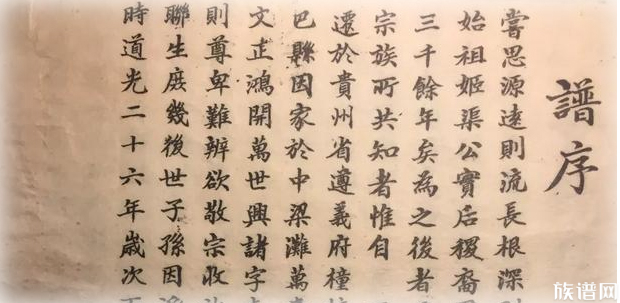 譜序
嘗思源遠則流長根深
始祖姬渠公實后稷裔
三千餘年矣為之後者
宗族所共知者惟自
遷於貴州省遵義府橦
巴縣因家於中梁灘萬
文正鴻開萬世興諸字
則尊卑難辨欲敬宗收
聯生庶幾後世子孫因
時道光二十六年歲次
族谱网